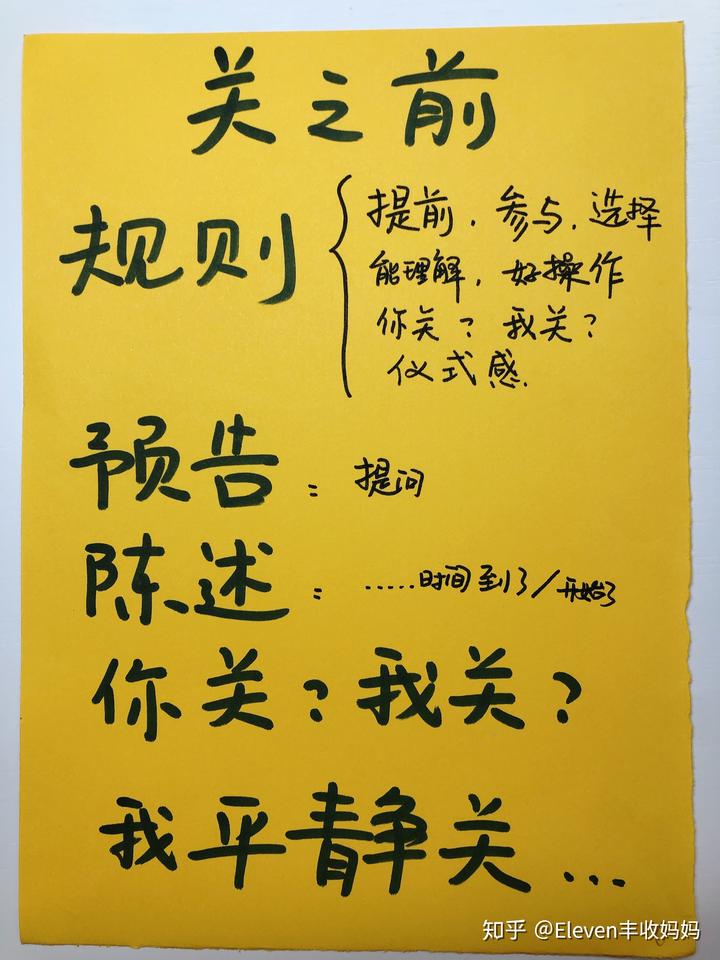 关之前
规则
提前.参与.选择
能理解,好操作
你关?我关?
仪式感.
预告:提问
陈述:……时间到了/开始了
你关?我关?
我平静关...
知乎 @Eleven丰收妈妈